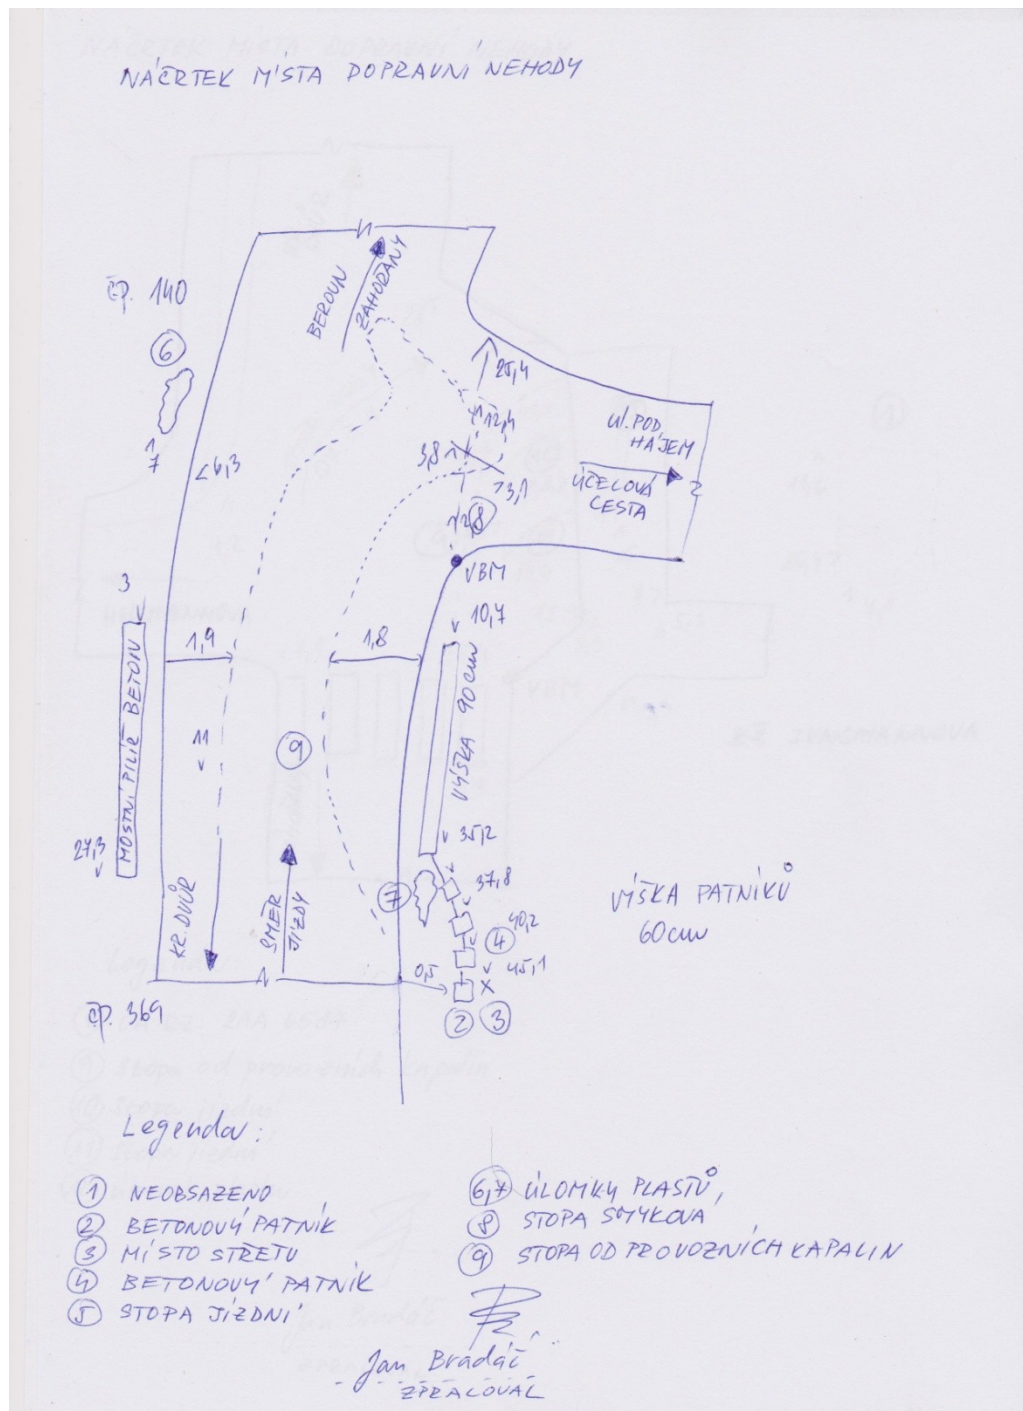 NÁČRTEK MÍSTA DOPRAVNÍ NEHODY
BEROUN
ZAHOŘANY
čp. 140
6
7
6,3
25,4
12,4
3,8
3,1
8
UL. POD
HÁJEM
ÚČELOVÁ
CESTA
2
VBM
10,7
3
1,9
1,8
MOSTNÍ PILÍŘ BETON
VÝŠKA 90cm
11
9
35,2
27,3
37,8
7
KR. DVŮR
SMĚR
JÍZDY
40,2
4
45,1
0,5
X
VÝŠKA PATNÍKŮ
60cm
čp. 369
2 3
Legenda:
1 NEOBSAZENO
2 BETONOVÝ PATNÍK
3 MÍSTO STŘETU
4 BETONOVÝ PATNÍK
5 STOPA JÍZDNÍ
6,7 ÚLOMKY PLASTŮ,
8 STOPA SMYKOVÁ
9 STOPA OD PROVOZNÍCH KAPALIN
Jan Bradáč
ZPRACOVAL